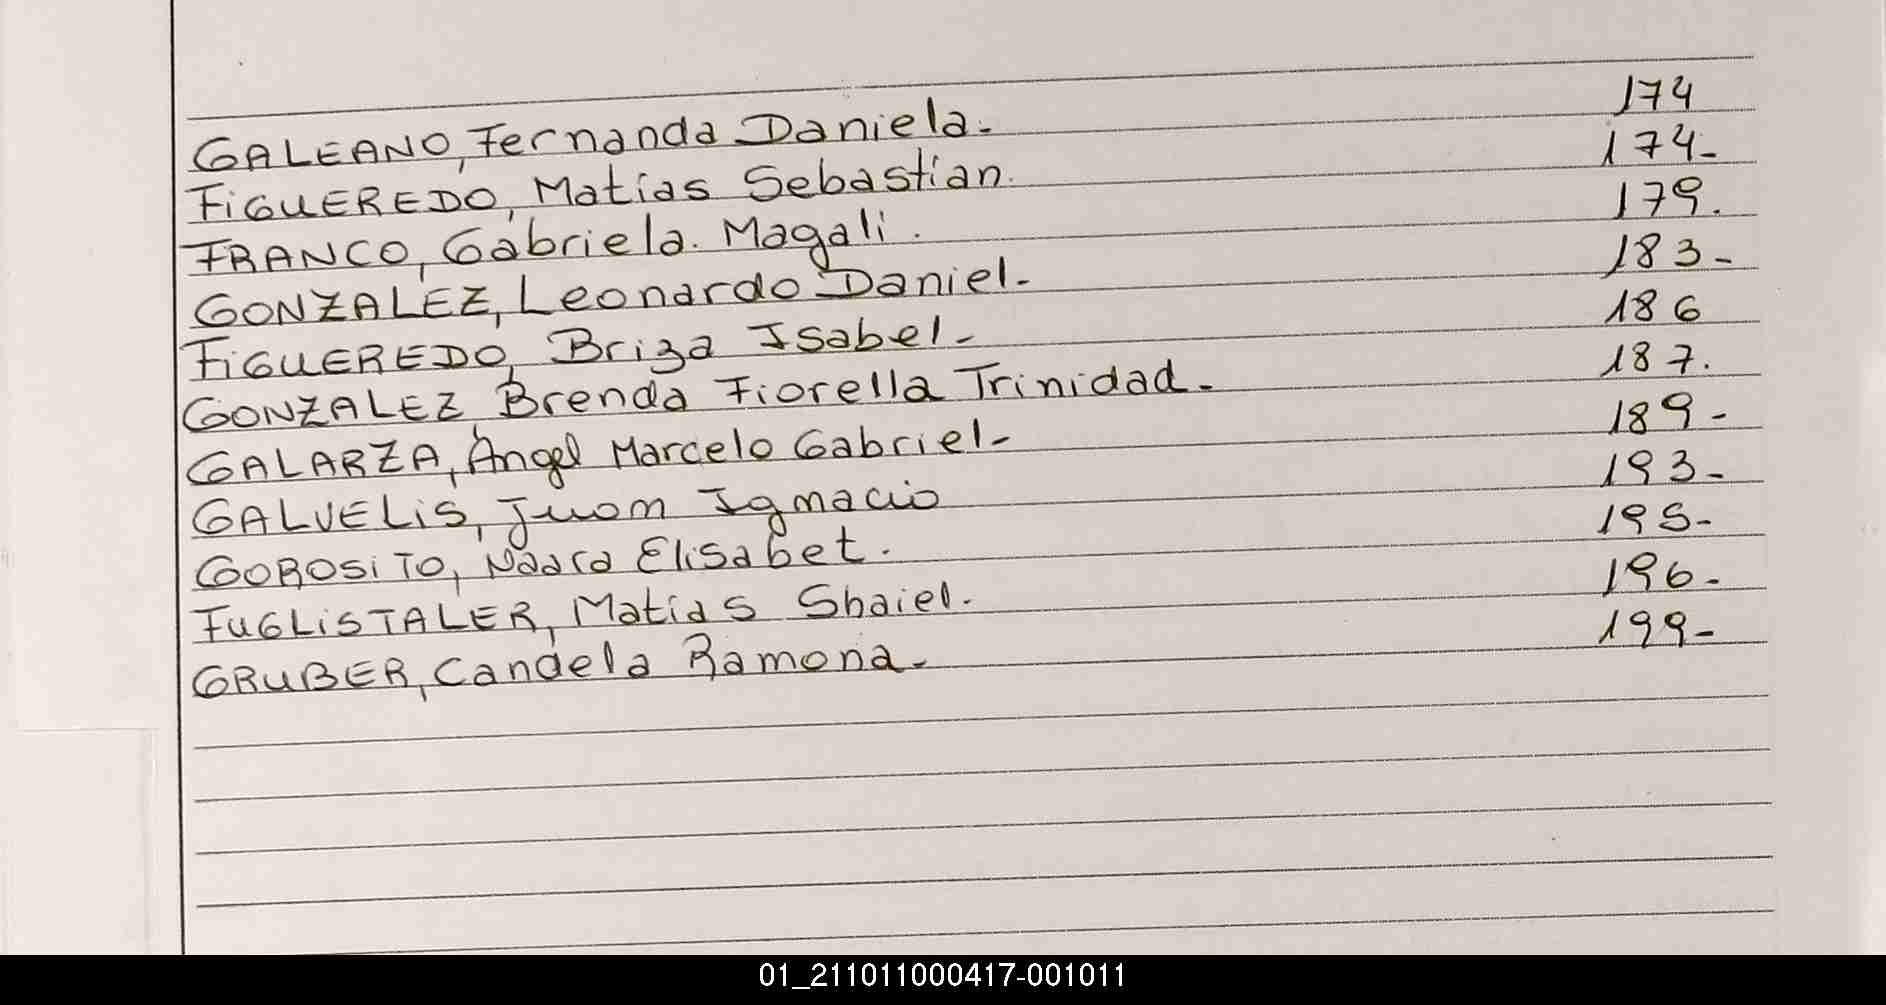 GALEANO, Fernanda Daniela. 174
FiGUEREDO, Matías Sebastían. 174-
FRANCO, Gabriela. Magali. 179.
GONZALEZ, Leonardo Daniel- 183-
FiGUEREDO, Briza Isabel- 186
GONZALEZ, Brenda Fiorella Trinidad- 187.
GALARZA, Ángel Marcelo Gabriel- 189-
GALVELiS, Juan Ignacio 193-
GOROSiTO, Naara Elisabet. 195-
FUGLiSTALER, Matias Shaiel. 196-
GRUBER, Candela Ramona- 199-
01_211011000417-001011